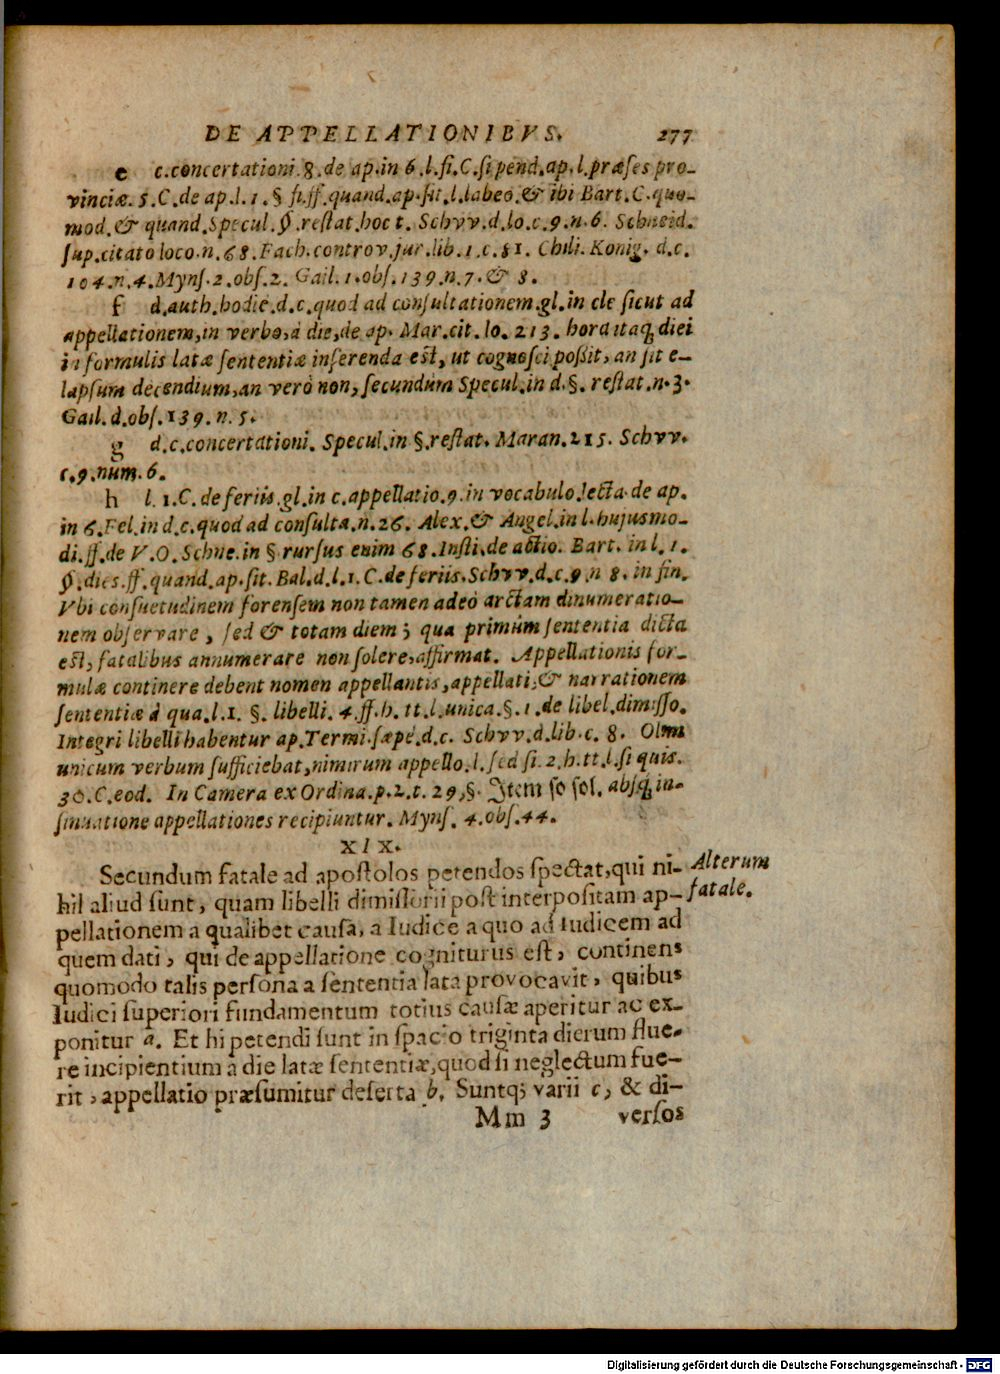 DE APPELLATIONIBVS. 277
e c.concertationi.8.de ap.in 6.l.fi.C.si pend.ap.l.præses pro-
vinciæ.5.C.de ap.l.1.§ fi.ff.quand.ap.sit.l.labeo.& ibi Bart.C.quo-
mod.& quand.Specul.§.restat.hoc t. Schvv.d.lo.c.9.n.6. Schneid.
sup.citato loco.n.68.Fach.controv.jur.lib.1.c.81. Chili.Konig. d.c.
104.n.4.Myns.2.obs.2. Gail.1.obs.139.n.7.& 8.
f d.auth.hodie.d.c.quod ad consultationem.gl.in cle sicut ad
appellationem,in verbo,à die,de ap. Mar.cit.lo.213. hora itaq; diei
in formulis latæ sententiæ inserenda est, ut cognosci possit, an sit e-
lapsum decendium,an verò non, secundùm Specul.in d.§. restat.n.3.
Gail.d.obs.139.n.5.
g d.c.concertationi. Specul.in §.restat. Maran.215. Schvv.
c.9.num.6.
h l.1.C.de feriis.gl.in c.appellatio.9.in vocabulo lecta.de ap.
in 6.Fel.in d.c.quod ad consulta.n.26. Alex.& Angel.in l.hujusmo-
di.ff.de V.O.Schne.in §.rursus enim 68.Insti.de actio. Bart. in l.1.
§.dies.ff.quand.ap.sit.Bal.d.l.1.C.de feriis.Schvv.d.c.9.n 8.in fin.
Vbi consuetudinem forensem non tamen adeò arctam dinumeratio-
nem observare, sed & totam diem; qua primùm sententia dicta
est, fatalibus annumerare non solere,affirmat. Appellationis for-
mulæ continere debent nomen appellantis,appellati,& narrationem
sententiæ à qua.l.1. §. libelli. 4.ff.h. tt.l.unica.§.1.de libel.dimisso.
Integri libelli habentur ap.Termi.sæpè.d.c. Schvv.d.lib.c. 8. Olim
unicum verbum sufficiebat,nimirum appello.l.sed si.2.h.tt.l.si quis.
30.C.eod. In Camera ex Ordina.p.2.t.29,§. Item so sol. absq; in-
sinuatione appellationes recipiuntur. Myns. 4.obs.44.
XIX.
Secundum fatale ad apostolos petendos spectat,qui ni- Alterum
hil aliud sunt, quam libelli dimissorii post interpositam ap- fatale.
pellationem a qualibet causa, a Iudice a quo ad Iudicem ad
quem dati, qui de appellatione cogniturus est, continens
quomodo talis persona a sententia lata provocavit, quibus
Iudici superiori fundamentum totius causæ aperitur ac ex-
ponitur a. Et hi petendi sunt in spacio triginta dierum flue-
re incipientium à die latæ sententiæ,quod si neglectum fue-
rit, appellatio præsumitur deserta b. Suntq; varii c, & di-
Mm 3 versos
Digitalisierung gefördert durch die Deutsche Forschungsgemeinschaft - DFG